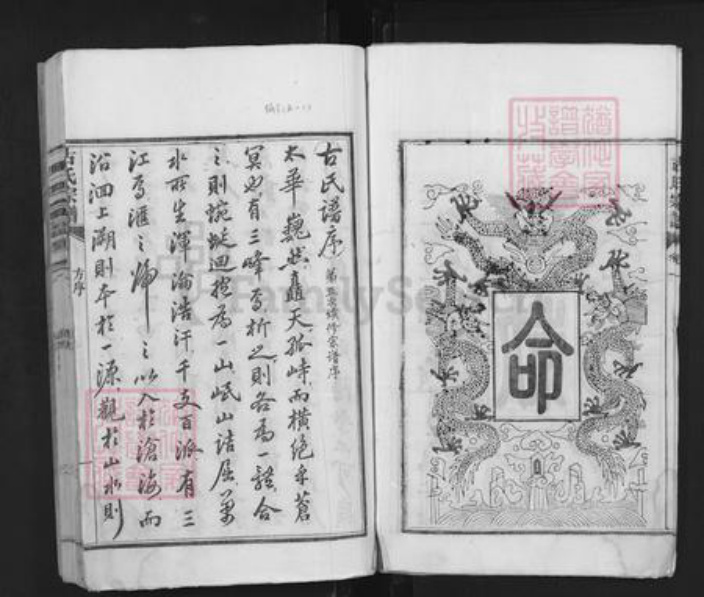 命
古氏譜序
第五次續修宗譜序
太華巍然矗天孤峙而橫絶乎蒼
冥也有三峰焉析之則各為一體合
之則蜿蜒迴抱為一山岷山詰屈萬
水所生渾淪浩汗千支百派有三
江焉滙之歸之以入於滄海而
沿泗上溯則本於一源觀於山水則
古氏宗譜
方序
FamilySearch